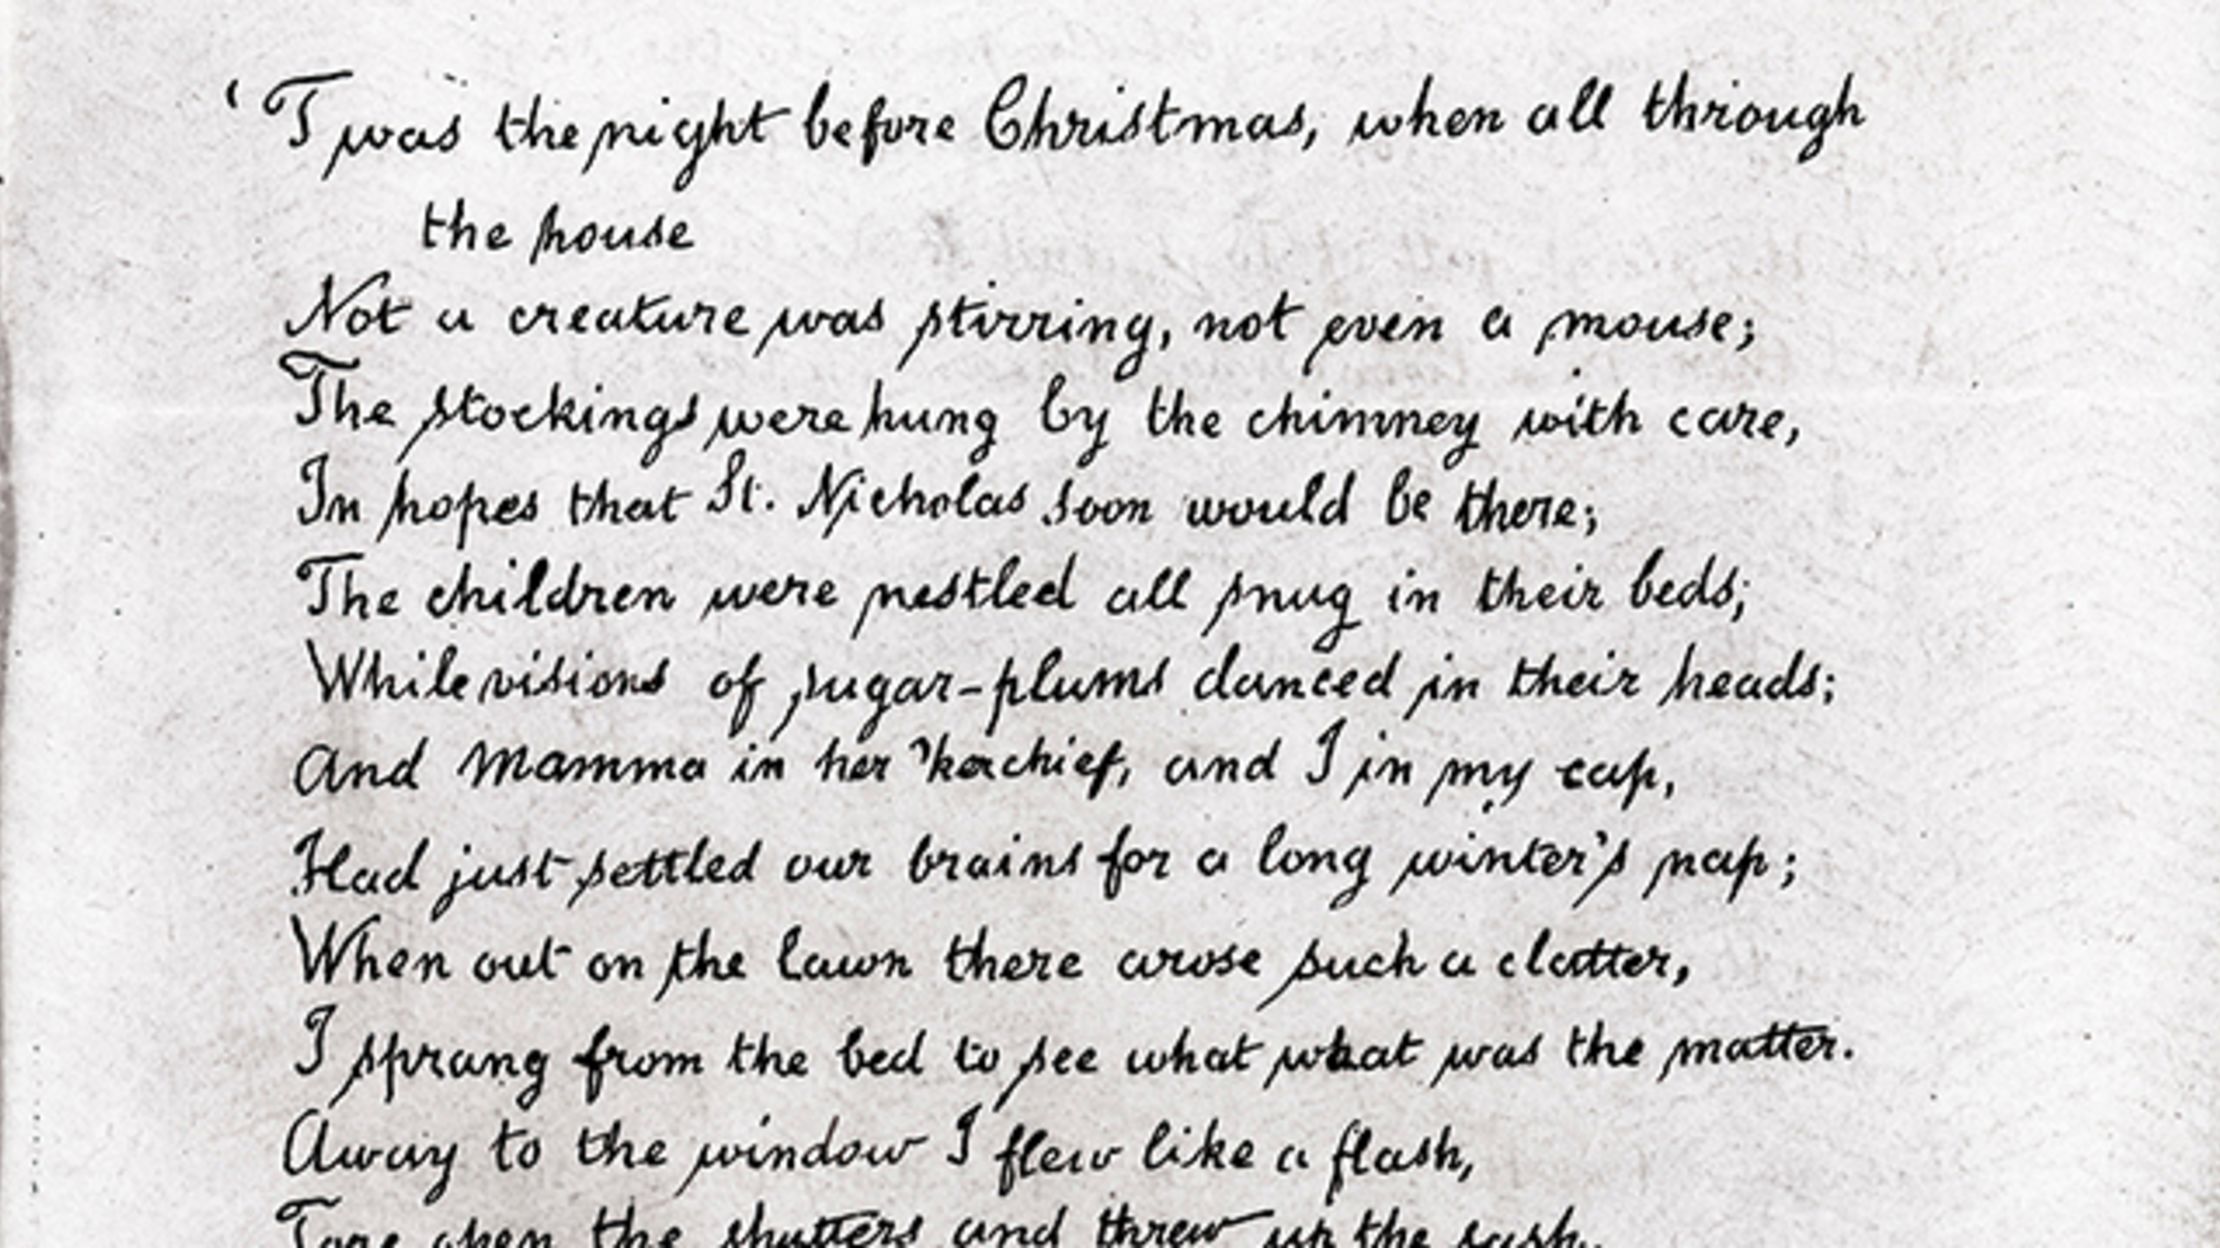 'Twas the night before Christmas, when all through
the house
Not a creature was stirring, not even a mouse;
The stockings were hung by the chimney with care,
In hopes that St. Nicholas soon would be there;
The children were nestled all snug in their beds;
While visions of sugar-plums danced in their heads;
And Mamma in her 'kerchief, and I in my cap,
Had just settled our brains for a long winter's nap;
When out on the lawn there arose such a clatter,
I sprang from the bed to see what what was the matter.
Away to the window I flew like a flash,
Tore open the shutters and threw up the sash.